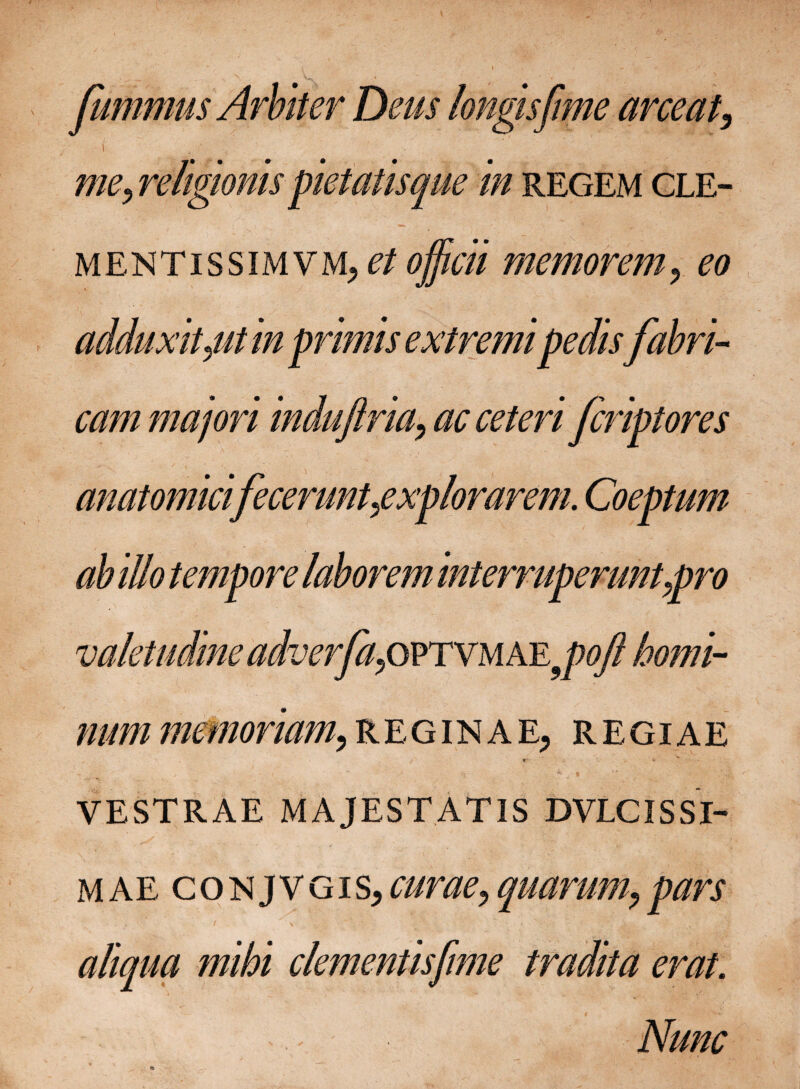 ſummus Arbiter Deus longisſime arceat,
me, religionis pietatisque in REGEM CLE-
MENTISSIMVM, et officii memorem, eo
adduxit, ut in primis extremi pedis fabri-
cam majori induſtria, ac ceteri ſcriptores
anatomici fecerunt, explorarem. Coeptum
ab illo tempore laborem interruperunt, pro
valetudine adverſa, OPTVMAE, poſt homi-
num memoriam, REGINAE, REGIAE
VESTRAE MAJESTATIS DVLCISSI-
MAE CONJVGIS, curae, quarum, pars
aliqua mihi clementisſime tradita erat.
Nunc